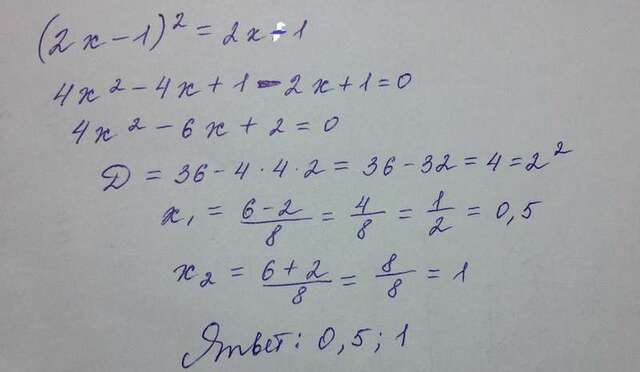 (2x-1)² = 2x-1
4x² - 4x + 1 - 2x + 1 = 0
4x² - 6x + 2 = 0
D = 36 - 4·4·2 = 36 - 32 = 4 = 2²
x₁ = (6-2)/8 = 4/8 = 1/2 = 0,5
x₂ = (6+2)/8 = 8/8 = 1
Ответ: 0,5; 1